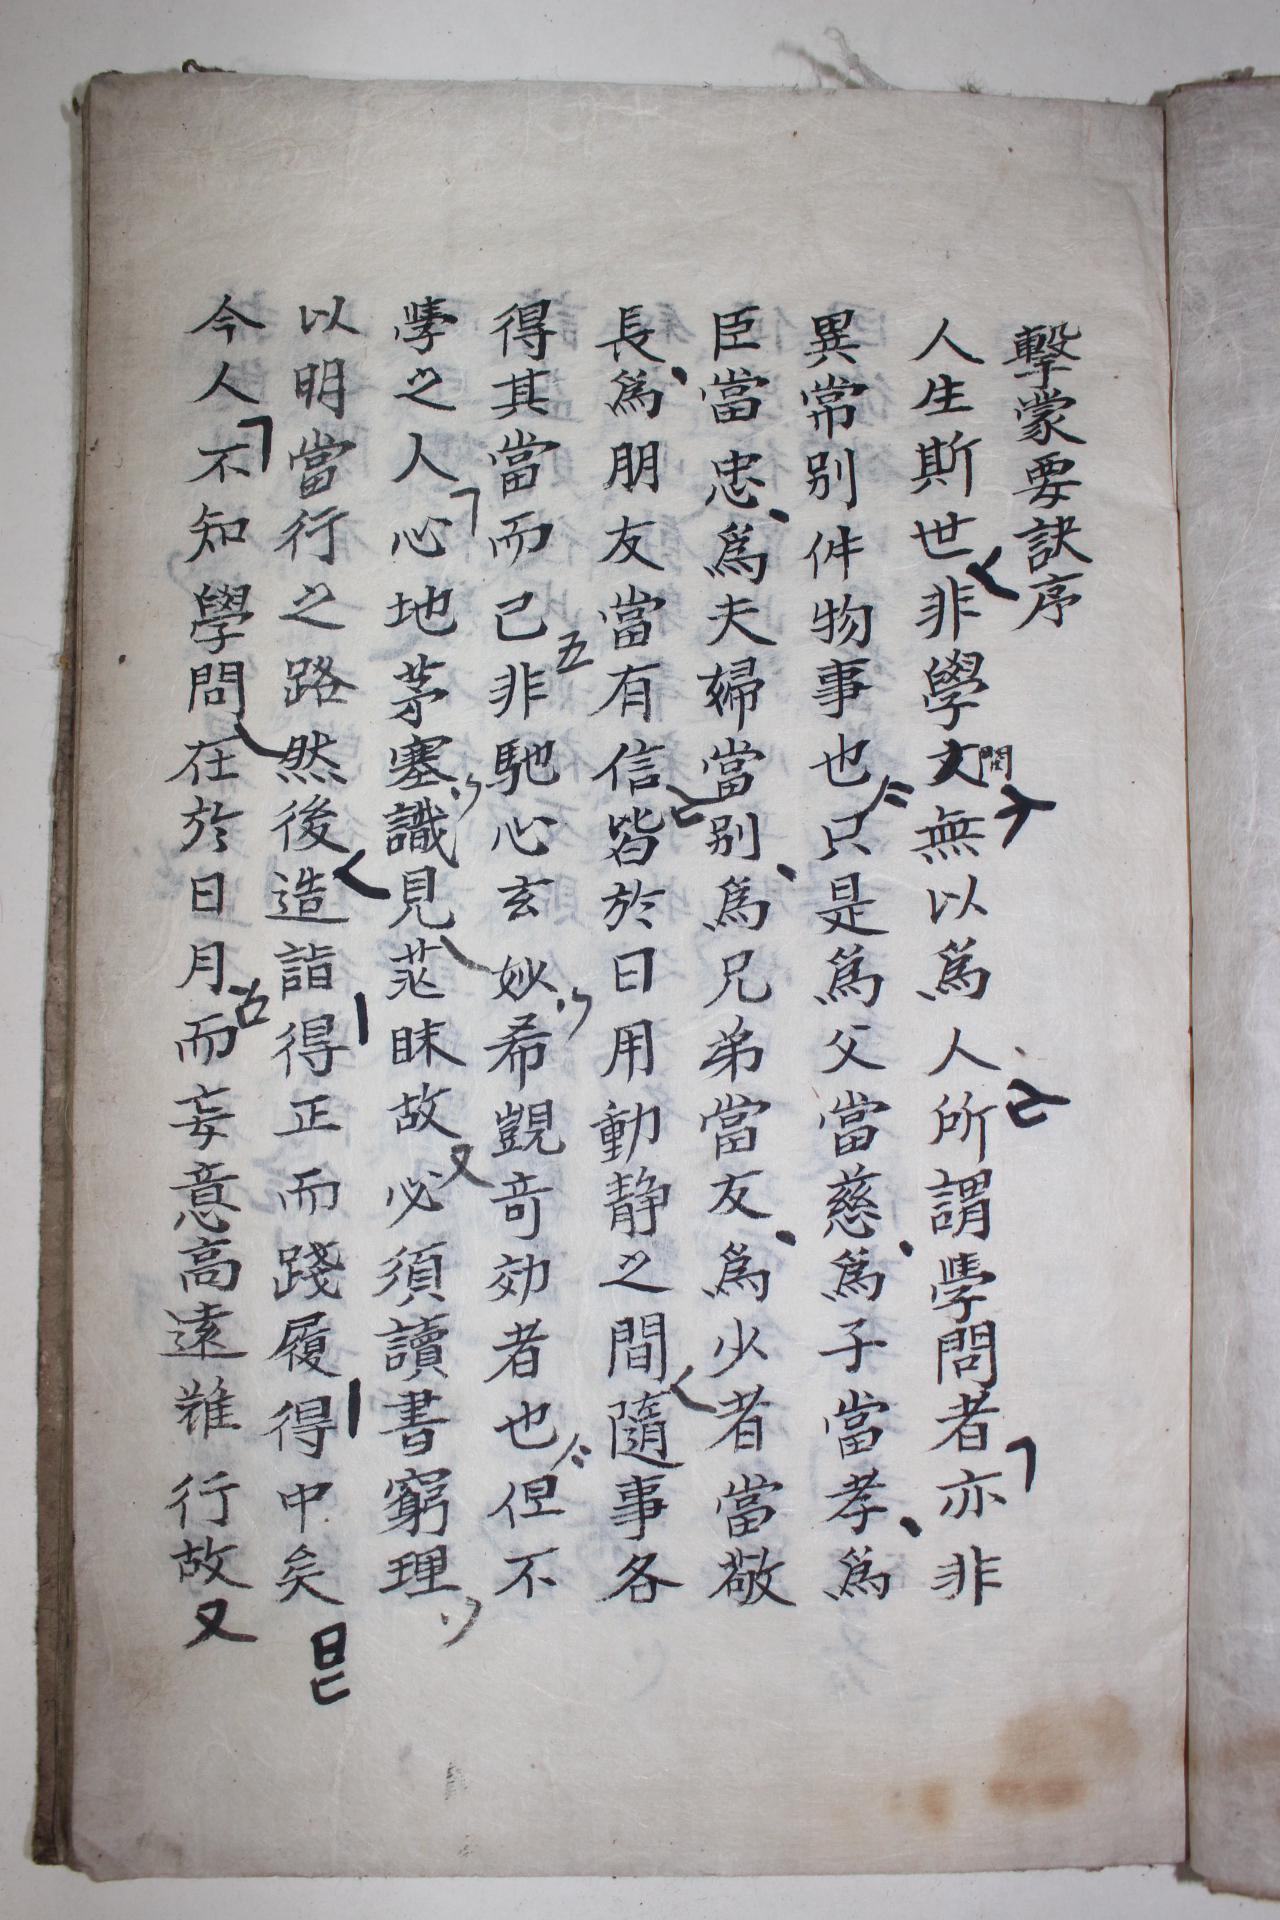 擊蒙要訣序
人生斯世非學文問無以爲人所謂學問者亦非
異常别件物事也只是爲父當慈爲子當孝爲
臣當忠爲夫婦當别爲兄弟當友爲少者當敬
長爲朋友當有信皆於日用動静之間隨事各
得其當而已非馳心玄妙希覬奇効者也但不
學之人心地茅塞識見茫昧故必須讀書窮理
以明當行之路然後造詣得正而踐履得中矣
今人不知學問在於日月而妄意高遠難行故